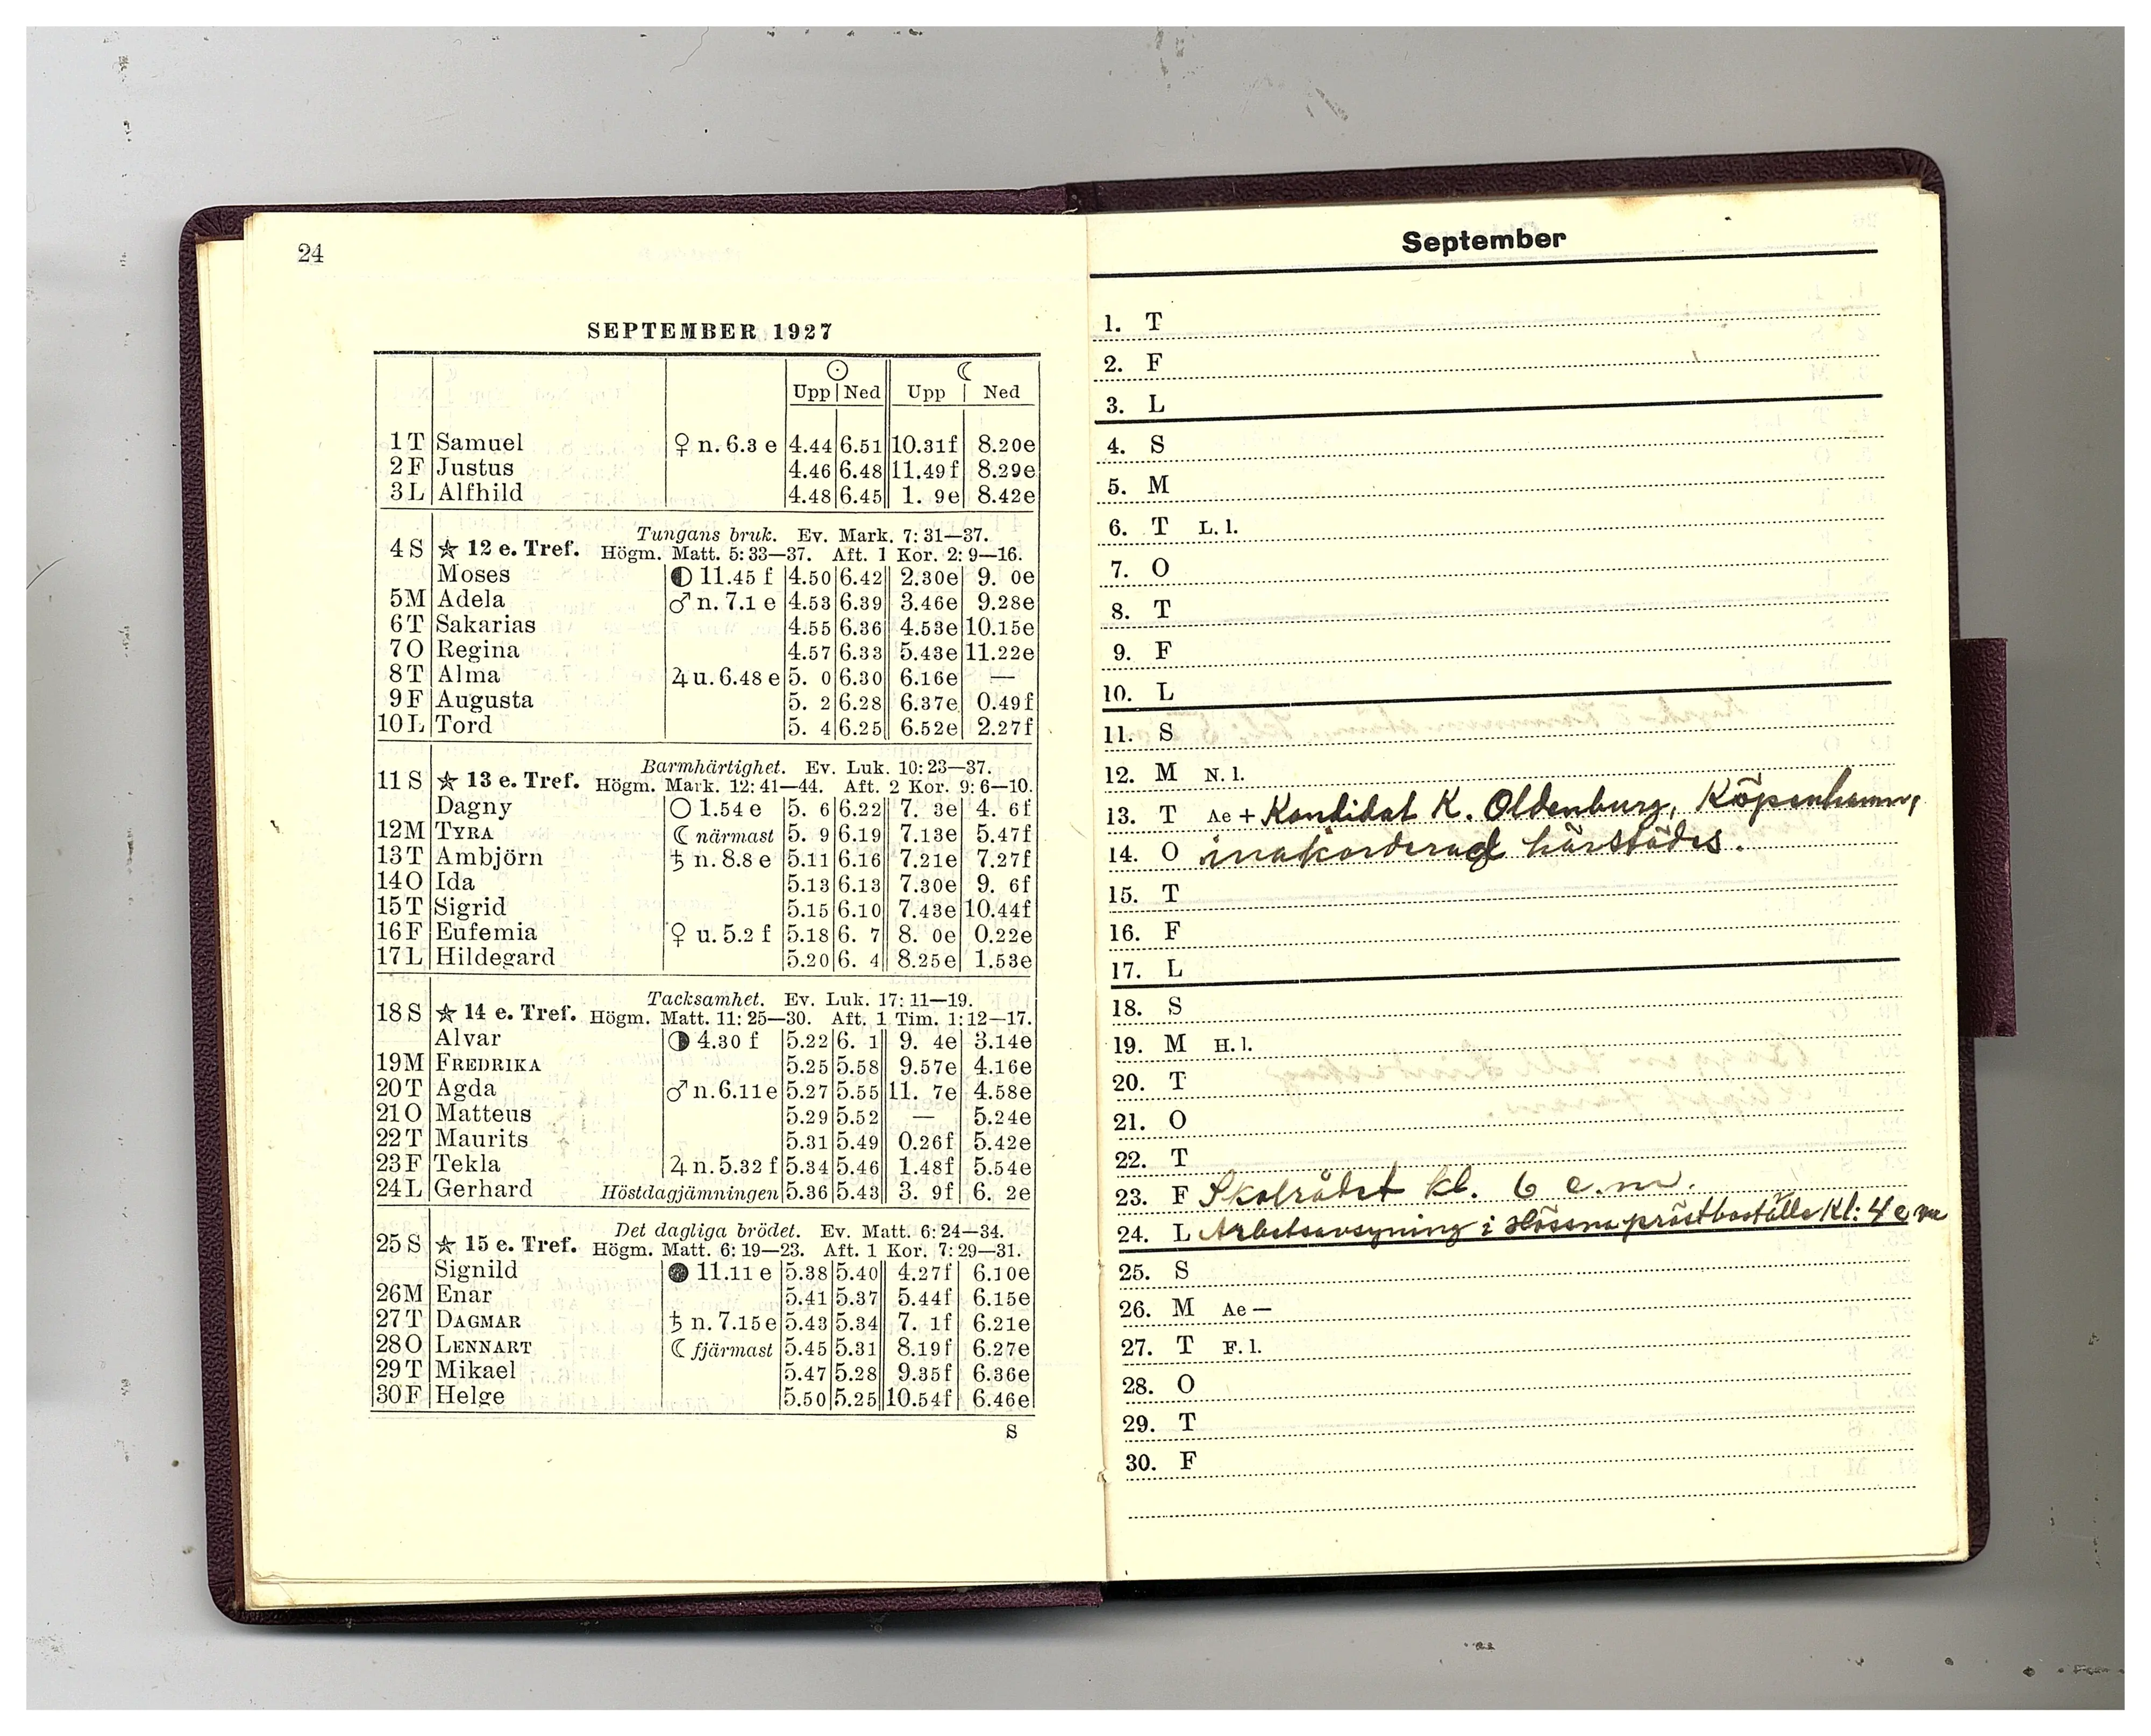 24
SEPTEMBER 1927
☉ ☾
Upp Ned Upp Ned
1 T Samuel ♀ n. 6.3 e 4.44 6.51 10.31 f 8.20 e
2 F Justus 4.46 6.48 11.49 f 8.29 e
3 L Alfhild 4.48 6.45 1. 9 e 8.42 e
Tungans bruk. Ev. Mark. 7: 31—37.
4 S ☆ 12 e. Tref. Högm. Matt. 5: 33—37. Aft. 1 Kor. 2: 9—16.
Moses ◐ 11.45 f 4.50 6.42 2.30 e 9. 0 e
5 M Adela ♂ n. 7.1 e 4.53 6.39 3.46 e 9.28 e
6 T Sakarias 4.55 6.36 4.53 e 10.15 e
7 O Regina 4.57 6.33 5.43 e 11.22 e
8 T Alma ♃ u. 6.48 e 5. 0 6.30 6.16 e —
9 F Augusta 5. 2 6.28 6.37 e 0.49 f
10 L Tord 5. 4 6.25 6.52 e 2.27 f
Barmhärtighet. Ev. Luk. 10: 23—37.
11 S ☆ 13 e. Tref. Högm. Mark. 12: 41—44. Aft. 2 Kor. 9: 6—10.
Dagny ○ 1.54 e 5. 6 6.22 7. 3 e 4. 6 f
12 M TYRA ☾ närmast 5. 9 6.19 7.13 e 5.47 f
13 T Ambjörn ♄ n. 8.8 e 5.11 6.16 7.21 e 7.27 f
14 O Ida 5.13 6.13 7.30 e 9. 6 f
15 T Sigrid 5.15 6.10 7.43 e 10.44 f
16 F Eufemia ♀ u. 5.2 f 5.18 6. 7 8. 0 e 0.22 e
17 L Hildegard 5.20 6. 4 8.25 e 1.53 e
Tacksamhet. Ev. Luk. 17: 11—19.
18 S ☆ 14 e. Tref. Högm. Matt. 11: 25—30. Aft. 1 Tim. 1: 12—17.
Alvar ◑ 4.30 f 5.22 6. 1 9. 4 e 3.14 e
19 M FREDRIKA 5.25 5.58 9.57 e 4.16 e
20 T Agda ♂ n. 6.11 e 5.27 5.55 11. 7 e 4.58 e
21 O Matteus 5.29 5.52 — 5.24 e
22 T Maurits 5.31 5.49 0.26 f 5.42 e
23 F Tekla ♃ n. 5.32 f 5.34 5.46 1.48 f 5.54 e
24 L Gerhard Höstdagjämningen 5.36 5.43 3. 9 f 6. 2 e
Det dagliga brödet. Ev. Matt. 6: 24—34.
25 S ☆ 15 e. Tref. Högm. Matt. 6: 19—23. Aft. 1 Kor. 7: 29—31.
Signild ● 11.11 e 5.38 5.40 4.27 f 6.10 e
26 M Enar 5.41 5.37 5.44 f 6.15 e
27 T DAGMAR ♄ n. 7.15 e 5.43 5.34 7. 1 f 6.21 e
28 O LENNART ☾ fjärmast 5.45 5.31 8.19 f 6.27 e
29 T Mikael 5.47 5.28 9.35 f 6.36 e
30 F Helge 5.50 5.25 10.54 f 6.46 e
S
September
1. T
2. F
3. L
4. S
5. M
6. T L. l.
7. O
8. T
9. F
10. L
11. S
12. M N. l.
13. T Ae + Kandidat K. Oldenburg, Köpenhamn,
14. O inakorderad härstädes.
15. T
16. F
17. L
18. S
19. M H. l.
20. T
21. O
22. T
23. F Skolrådet kl. 6 e.m.
24. L Arbetsavsyning i Hössna prästboställe kl: 4 e m
25. S
26. M Ae —
27. T F. l.
28. O
29. T
30. F